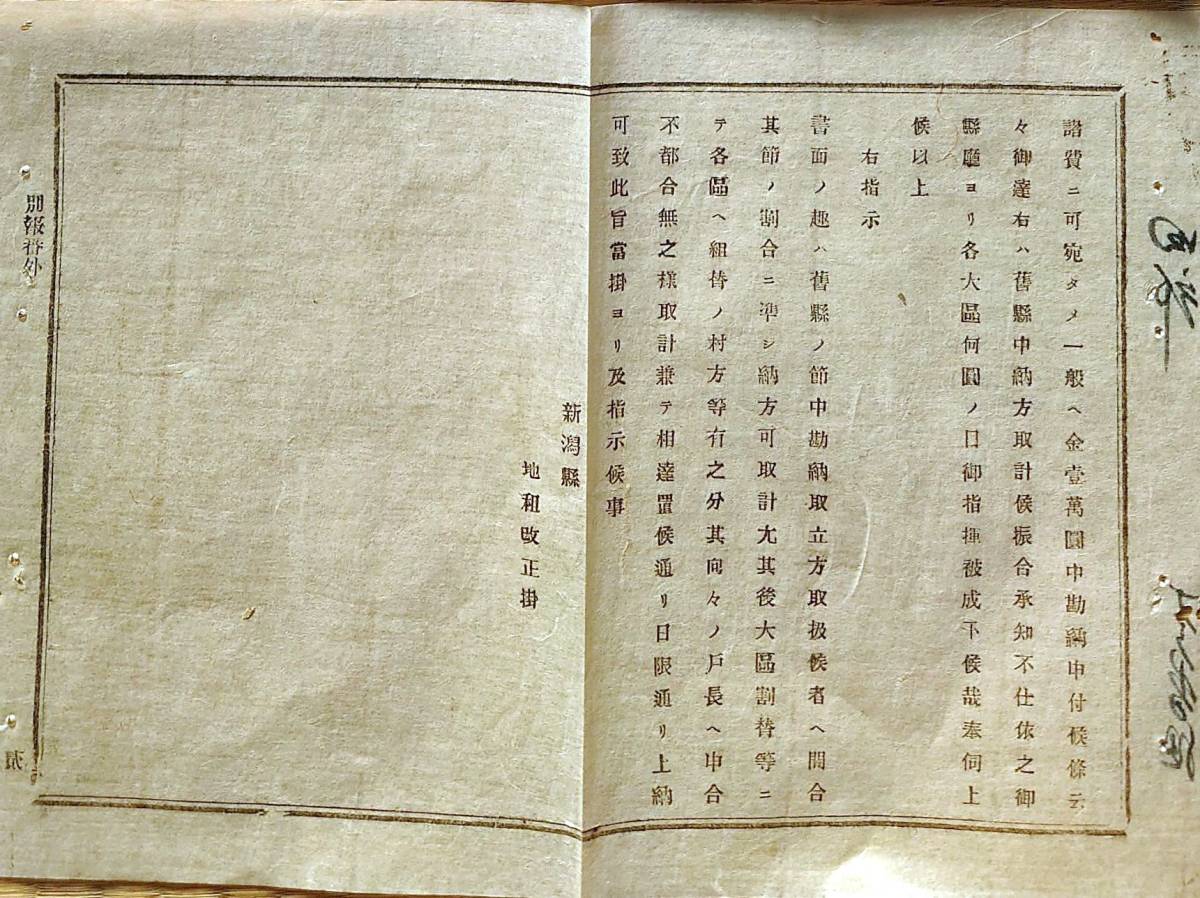 諸費ニ可宛タメ一般ヘ金壹萬圓中勘納申付候條云
々御達右ハ舊縣中納方取計候振合承知不仕依之御
縣廳ヨリ各大區何圓ノ日御指揮被成下候哉奉伺上
候以上
右指示
書面ノ趣ハ舊縣ノ節中勘納取立方取扱候者ヘ問合
其節ノ割合ニ準シ納方可取計尤其後大區割替等ニ
テ各區ヘ組替ノ村方等有之分其向々ノ戸長ヘ申合
不都合無之樣取計兼テ相達置候通リ日限通リ上納
可致此旨當掛ヨリ及指示候事
新潟縣
地租改正掛
別報番外